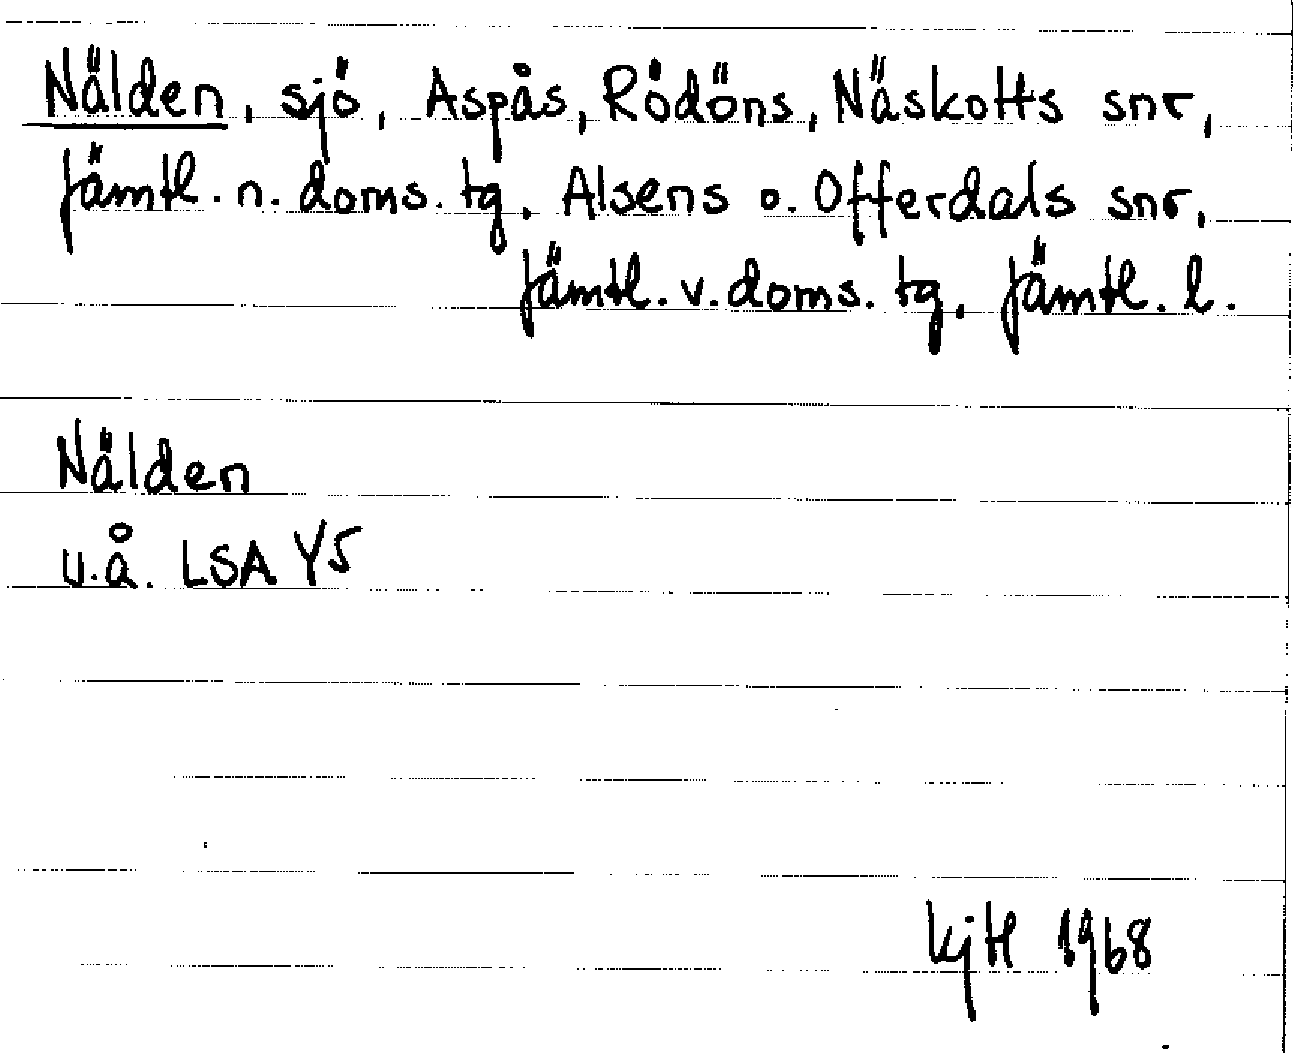 Nälden, sjö, Aspås, Rödöns, Näskotts snr,
Jämtl. n. doms. tg, Alsens o. Offerdals snr,
Jämtl. v. doms. tg, Jämtl. l.
Nälden
u.å. LSA Y5
1968